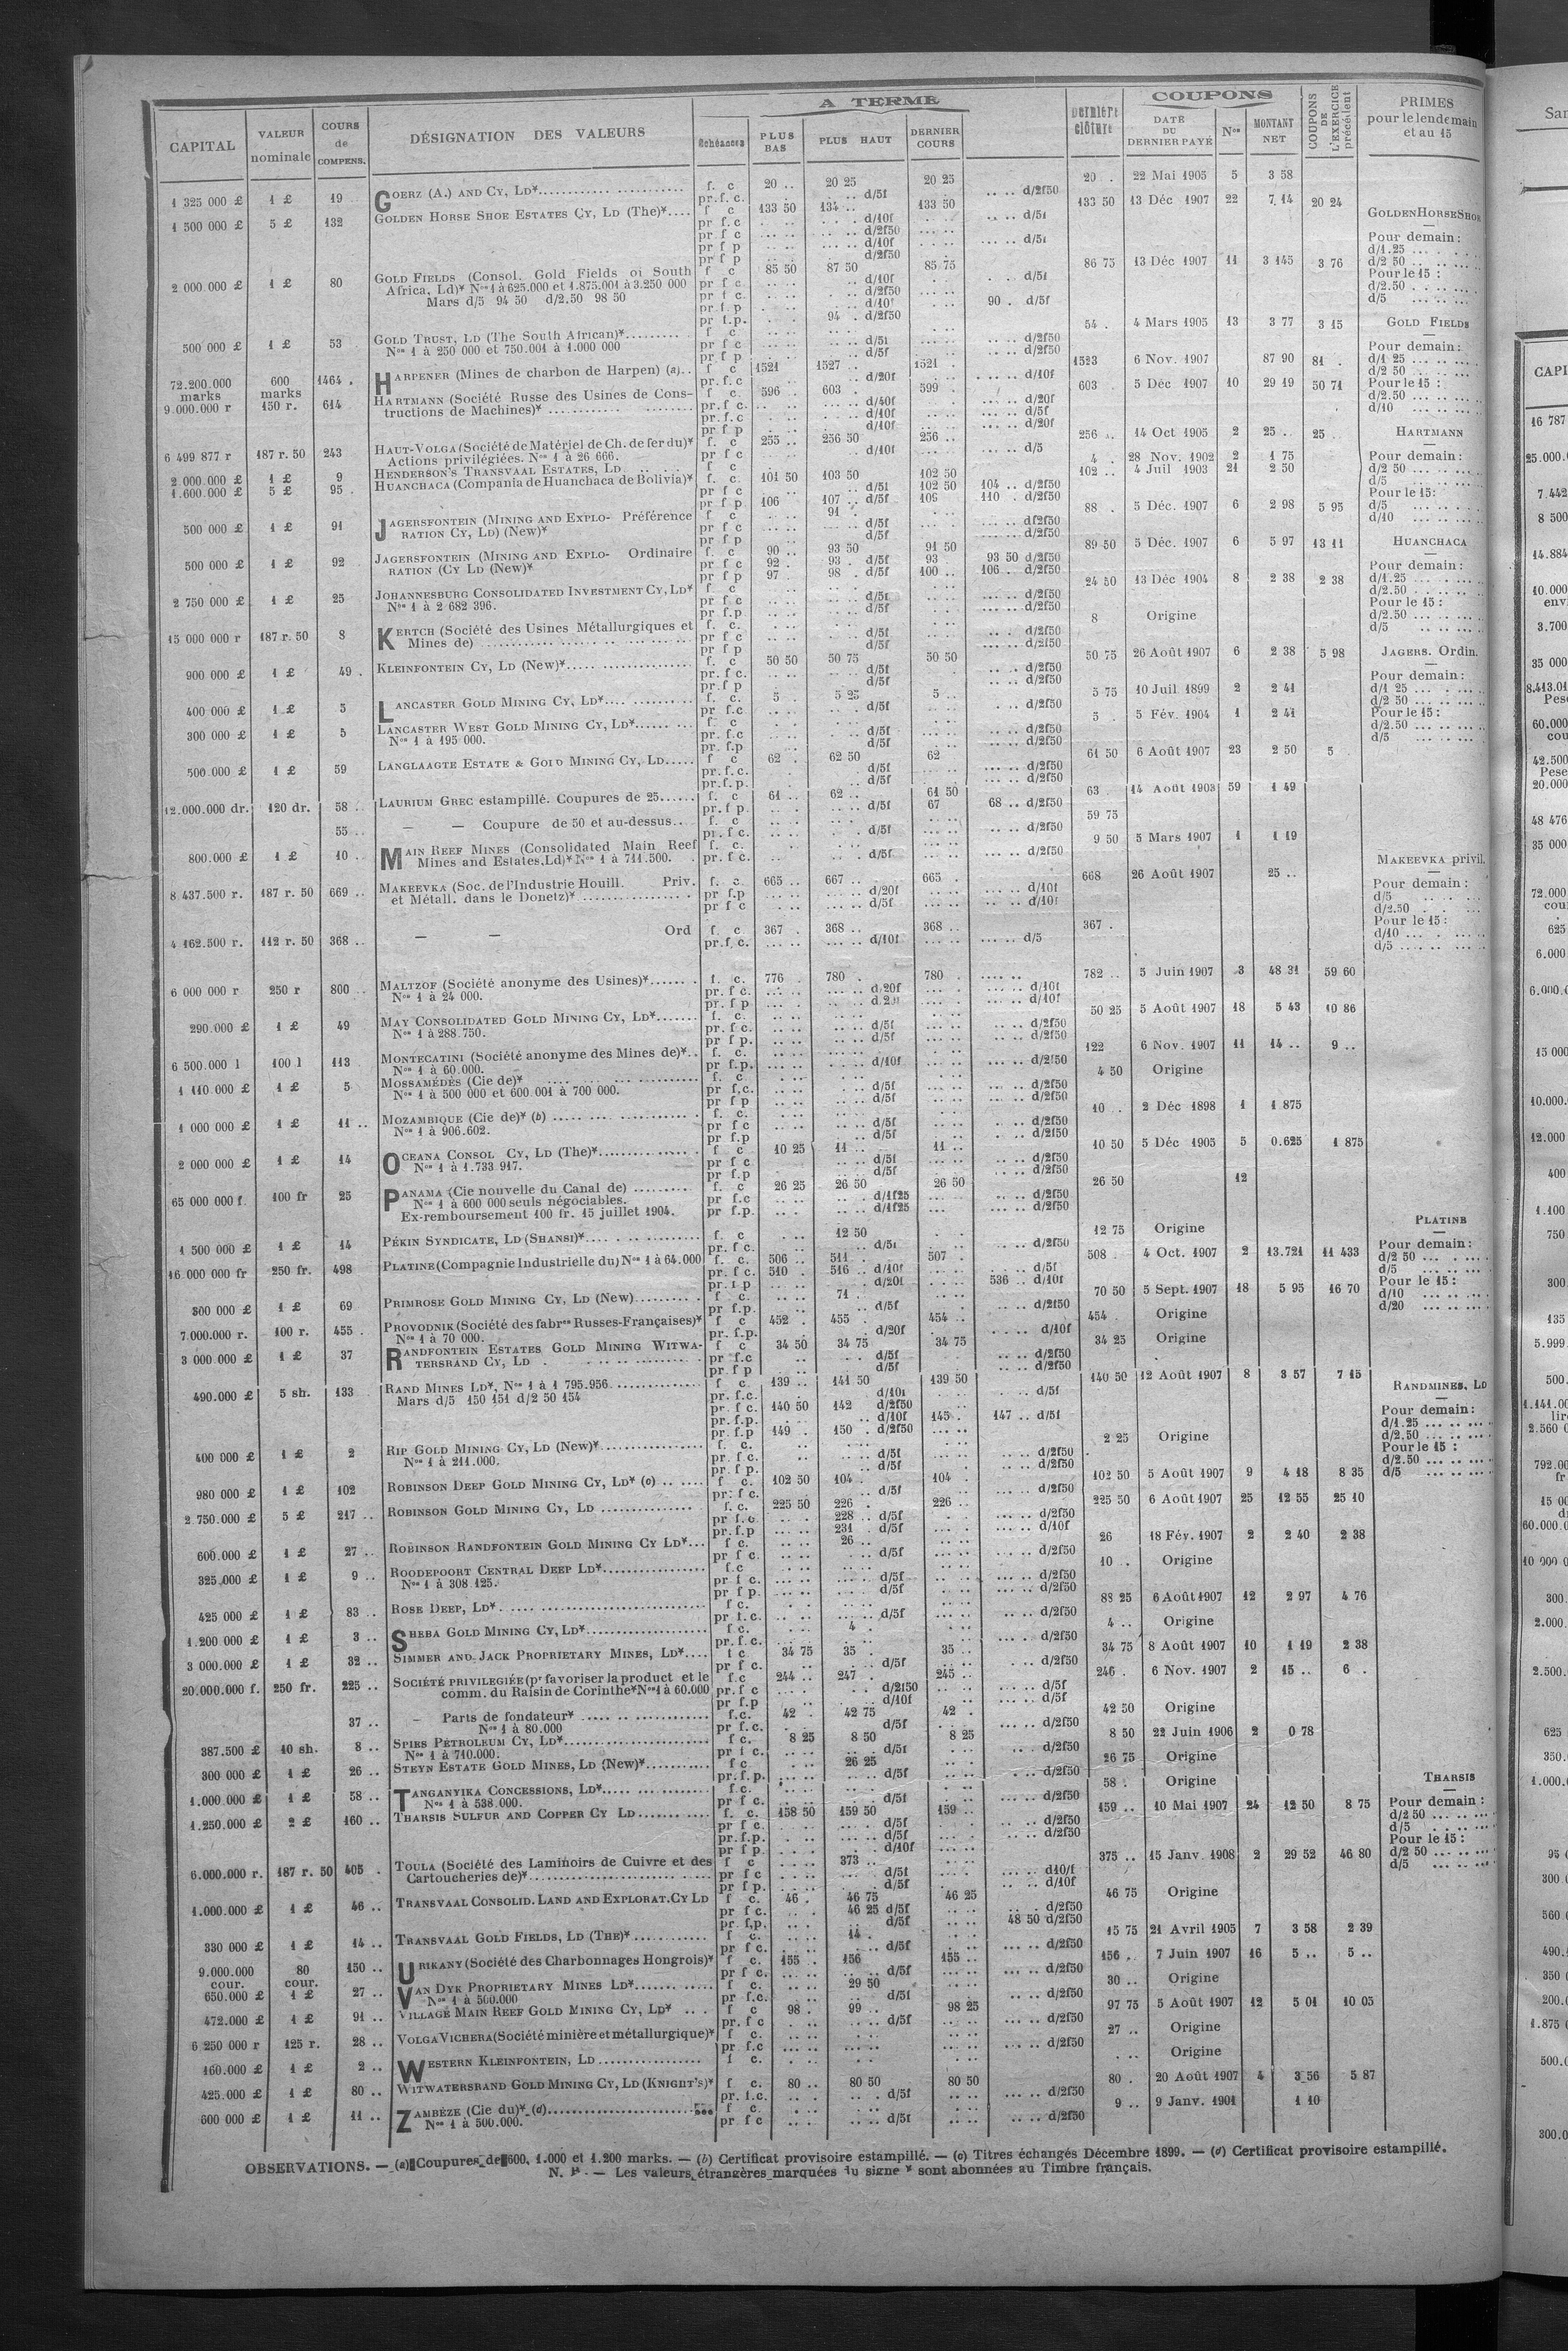 A TERME
COUPONS
CAPITAL
VALEUR nominale
COURS de COMPENS.
DÉSIGNATION DES VALEURS
Échéances
PLUS BAS
PLUS HAUT
DERNIER COURS
Dernière clôture
DATE DU DERNIER PAYÉ
Nos
MONTANT NET
COUPONS DE L'EXERCICE précédent
PRIMES pour le lendemain et au 15
1 325 000 £ 1 £ 19 GOERZ (A.) AND CY, LD* f. c 20 .. 20 25 20 25 20 . 22 Mai 1905 5 3 58
pr.f.c. d/5f d/2f50
1 500 000 £ 5 £ 132 GOLDEN HORSE SHOE ESTATES CY, LD (The)* f c 133 50 134 .. 133 50 133 50 13 Déc 1907 22 7,14 20 24
pr f.c d/10f d/5f
pr f c d/2f50
pr f p d/10f d/5f
pr f p d/2f50
2 000 000 £ 1 £ 80 GOLD FIELDS (Consol. Gold Fields of South f c 85 50 87 50 85 75 86 75 13 Déc 1907 11 3 145 3 76
Africa, Ld)* Nos 1 à 625.000 et 1.875.001 à 3.250 000 pr f c d/10f d/5f
Mars d/5 94 50 d/2.50 98 50 pr f c. d/2f50
pr.f.p d/10f 90 . d/5f
pr f.p. 94 . d/2f50
500 000 £ 1 £ 53 GOLD TRUST, LD (The South African)* f c 54 . 4 Mars 1905 13 3 77 3 15
Nos 1 à 250 000 et 750.001 à 1.000 000 pr f c d/5f d/2f50
pr f p d/5f d/2f50
72.200.000 marks 600 marks 1464 . HARPENER (Mines de charbon de Harpen) (a) f c 1521 1527 .. 1521 . 1523 6 Nov. 1907 87 90 81 .
pr.f.c d/20f d/10f
9.000.000 r 150 r. 614 HARTMANN (Société Russe des Usines de Cons- f c. 596 . 603 . 599 . 603 5 Déc 1907 10 29 19 50 71
tructions de Machines)* pr.f c. d/40f d/20f
pr.f.c d/10f d/5f
pr f p d/10f d/20f
6 499 877 r 187 r. 50 243 HAUT-VOLGA (Société de Matériel de Ch. de fer du)* f. c 255 .. 256 50 256 .. 256 .. 14 Oct 1905 2 25 .. 25 ..
Actions privilégiées. Nos 1 à 26 666. pr f c d/10f d/5
2 000.000 £ 1 £ 9 HENDERSON'S TRANSVAAL ESTATES, LD f c 4 . 28 Nov. 1902 2 1 75
1.600.000 £ 5 £ 95 . HUANCHACA (Compania de Huanchaca de Bolivia)* f. c. 101 50 103 50 102 50 102 .. 4 Juil 1903 21 2 50
pr f c d/5f 102 50 104 .. d/2f50
pr f p 106 107 .. d/5f 106 110 . d/2f50
500 000 £ 1 £ 91 JAGERSFONTEIN (MINING AND EXPLO- Préférence f c 91 . 88 . 5 Déc. 1907 6 2 98 5 95
RATION CY, LD) (New)* pr f c d/5f df2f50
pr f p d/5f d/2f50
500 000 £ 1 £ 92 JAGERSFONTEIN (MINING AND EXPLO- Ordinaire f. c 90 .. 93 50 91 50 89 50 5 Déc. 1907 6 5 97 13 11
RATION (CY LD (New)* pr f c 92 . 93 . d/5f 93 93 50 d/2f50
pr f p 97 . 98 . d/5f 100 .. 106 . d/2f50
2 750 000 £ 1 £ 25 JOHANNESBURG CONSOLIDATED INVESTMENT CY, LD* f c 24 50 13 Déc 1904 8 2 38 2 38
Nos 1 à 2 682 396. pr f c d/5f d/2f50
pr f.p d/5f d/2f50
15 000 000 r 187 r. 50 8 KERTCH (Société des Usines Métallurgiques et f. c. 8 Origine
Mines de) pr f c d/5f d/2f50
pr f p d/5f d/2f50
900 000 £ 1 £ 49 . KLEINFONTEIN CY, LD (New)* f. c 50 50 50 75 50 50 50 75 26 Août 1907 6 2 38 5 98
pr f.c. d/5f d/2f50
pr.f p d/5f d/2f50
400 000 £ 1 £ 5 LANCASTER GOLD MINING CY, LD* f. c. 5 . 5 25 5 .. 5 75 10 Juil 1899 2 2 41
pr f.c d/5f d/2f50
300 000 £ 1 £ 5 LANCASTER WEST GOLD MINING CY, LD* f c 5 . 5 Fév. 1904 1 2 41
Nos 1 à 195 000. pr. f.c d/5f d/2f50
pr. f.p d/5f d/2f50
500.000 £ 1 £ 59 LANGLAAGTE ESTATE & GOLD MINING CY, LD f c 62 . 62 50 62 61 50 6 Août 1907 23 2 50 5
pr.f.c. d/5f d/2f50
pr.f.p. d/5f d/2f50
12.000.000 dr. 120 dr. 58 .. LAURIUM GREC estampillé. Coupures de 25 f. c 61 .. 62 .. 61 50 63 . 14 Août 1903 59 1 49
pr.f p d/5f 67 68 .. d/2f50
55 .. — — Coupure de 50 et au-dessus f. c 59 75
pr. f c. d/5f d/2f50
800.000 £ 1 £ 10 .. MAIN REEF MINES (Consolidated Main Reef f. c. 9 50 5 Mars 1907 1 1 19
Mines and Estates, Ld)* Nos 1 à 711.500. pr. f c. d/5f d/2f50
8 437.500 r. 187 r. 50 669 .. MAKEEVKA (Soc. de l'Industrie Houill. Priv. f. c. 665 .. 667 .. 665 . 668 26 Août 1907 25 ..
et Métall. dans le Donetz)* pr f.p d/20f d/10f
pr f c d/5f d/10f
4 162.500 r. 112 r. 50 368 .. — — Ord f. c 367 . 368 .. 368 .. 367 .
pr.f, c. d/10f d/5
6 000 000 r 250 r 800 .. MALTZOF (Société anonyme des Usines)* f. c. 776 . 780 . 780 . 782 .. 5 Juin 1907 3 48 31 59 60
Nos 1 à 24 000. pr. f c. d/20f d/10f
pr f p d/10f
290.000 £ 1 £ 49 MAY CONSOLIDATED GOLD MINING CY, LD* f. c. 50 25 5 Août 1907 18 5 43 10 86
Nos 1 à 288.750. pr. f c. d/5f d/2f50
pr f p. d/5f d/2f50
6 500.000 l 100 l 113 MONTECATINI (Société anonyme des Mines de)* f. c. 122 6 Nov. 1907 11 14 .. 9 ..
Nos 1 à 60.000. pr f.p. d/10f d/2f50
1 110.000 £ 1 £ 5 MOSSAMÉDÈS (Cie de)* f. c. 4 50 Origine
Nos 1 à 500 000 et 600 001 à 700 000. pr f,c. d/5f d/2f50
pr f p d/5f d/2f50
1 000 000 £ 1 £ 11 .. MOZAMBIQUE (Cie de)* (b) f. c. 10 . 2 Déc 1898 1 1 875
Nos 1 à 906.602. pr f c d/5f d/2f50
pr f.p d/5f d/2f50
2 000 000 £ 1 £ 14 OCEANA CONSOL CY, LD (The)* f c 10 25 11 .. 11 .. 10 50 5 Déc 1905 5 0.625 1 875
Nos 1 à 1.733 917. pr f c d/5f d/2f50
pr f.p d/5f d/2f50
65 000 000 f. 100 fr 25 PANAMA (Cie nouvelle du Canal de) f. c 26 25 26 50 26 50 26 50 12
Nos 1 à 600 000 seuls négociables. pr f.c d/1f25 d/2f50
Ex-remboursement 100 fr. 15 juillet 1904. pr f.p. d/1f25 d/2f50
1 500 000 £ 1 £ 14 PÉKIN SYNDICATE, LD (SHANSI)* f. c 12 50 12 75 Origine
pr. f c. d/5f d/2f50
16.000 000 fr 250 fr. 498 PLATINE (Compagnie Industrielle du) Nos 1 à 64.000 f. c. 506 .. 511 . 507 . 508 . 4 Oct. 1907 2 13.721 11 433
pr. f c. 510 . 516 .. d/10f d/5f
pr. f p d/20f 536 .. d/10f
300 000 £ 1 £ 69 PRIMROSE GOLD MINING CY, LD (New) f c. 71 . 70 50 5 Sept. 1907 18 5 95 16 70
pr f.p. d/5f d/2f50
7.000.000 r. 100 r. 455 . PROVODNIK (Société des fabres Russes-Françaises)* f c 452 . 455 . 454 .. 454 . Origine
Nos 1 à 70 000. pr. f.p. d/20f d/10f
3 000 000 £ 1 £ 37 RANDFONTEIN ESTATES GOLD MINING WITWA- f c 34 50 34 75 34 75 34 25 Origine
TERSRAND CY, LD pr f.c d/5f d/2f50
pr f p d/5f d/2f50
490.000 £ 5 sh. 133 RAND MINES LD*, Nos 1 à 1 795.956 f c. 139 .. 141 50 139 50 140 50 12 Août 1907 8 3 57 7 15
Mars d/5 150 151 d/2 50 154 pr. f.c. d/10f d/5f
pr. f c. 140 50 142 d/2f50
pr. f.p. d/10f 145 . 147 .. d/5f
pr. f.p 149 . 150 . d/2f50
400 000 £ 1 £ 2 RIP GOLD MINING CY, LD (New)* f. c. 2 25 Origine
Nos 1 à 211.000. pr. f c. d/5f d/2f50
pr. f p. d/5f d/2f50
980 000 £ 1 £ 102 ROBINSON DEEP GOLD MINING CY, LD* (c) f c. 102 50 104 . 104 . 102 50 5 Août 1907 9 4 18 8 35
pr: f c. d/5f d/2f50
2 750.000 £ 5 £ 217 .. ROBINSON GOLD MINING CY, LD f. c. 225 50 226 . 226 .. 225 50 6 Août 1907 25 12 55 25 10
pr f.c. 228 .. d/5f d/2f50
pr. f.p 231 d/5f d/10f
600.000 £ 1 £ 27 .. ROBINSON RANDFONTEIN GOLD MINING CY LD* f c. 26 .. 26 18 Fév. 1907 2 2 40 2 38
pr f c. d/5f d/2f50
325.000 £ 1 £ 9 .. ROODEPOORT CENTRAL DEEP LD* f.c 10 .. Origine
Nos 1 à 308 125. pr f c. d/5f d/2f50
pr f p. d/5f d/2f50
425 000 £ 1 £ 83 .. ROSE DEEP, LD* f c. 88 25 6 Août 1907 12 2 97 4 76
pr f.c. d/5f d/2f50
1.200 000 £ 1 £ 3 .. SHEBA GOLD MINING CY, LD* f c. 4 . 4 .. Origine
pr. f.c. d/2f50
3 000.000 £ 1 £ 32 .. SIMMER AND JACK PROPRIETARY MINES, LD* f c 34 75 35 . 35 .. 34 75 8 Août 1907 10 1 19 2 38
pr f c. d/5f d/2f50
20.000.000 f. 250 fr. 225 .. SOCIÉTÉ PRIVILEGIÉE (pr favoriser la product et le f.c 244 .. 247 . 245 .. 246 . 6 Nov. 1907 2 15 .. 6 ..
comm. du Raisin de Corinthe* Nos 1 à 60.000 pr. f c d/2f50 d/5f
pr f.p d/10f d/5f
37 .. — Parts de fondateur* f.c. 42 . 42 75 42 . 42 50 Origine
Nos 1 à 80.000 pr f.c. d/5f d/2f50
387.500 £ 10 sh. 8 .. SPIES PETROLEUM CY, LD* f c. 8 25 8 50 8 25 8 50 22 Juin 1906 2 0 78
Nos 1 à 710.000. pr f c. d/5f d/2f50
300 000 £ 1 £ 26 .. STEYN ESTATE GOLD MINES, LD (New)* f c 26 25 26 75 Origine
pr. f. p. d/5f d/2f50
1.000.000 £ 1 £ 58 .. TANGANYIKA CONCESSIONS, LD* f.c. 58 . Origine
Nos 1 à 538.000. pr f c. d/5f d/2f50
1.250.000 £ 2 £ 160 .. THARSIS SULFUR AND COPPER CY LD f. c. 158 50 159 50 159 .. 159 .. 10 Mai 1907 24 12 50 8 75
pr f c. d/5f d/2f50
pr. f.p. d/5f d/2f50
pr f p. d/10f
6.000.000 r. 187 r. 50 405 . TOULA (Société des Laminoirs de Cuivre et des f c 373 .. 375 .. 15 Janv. 1908 2 29 52 46 80
Cartoucheries de)* pr f c d/5f d10/f
pr f p. d/5f d/10f
1.000.000 £ 1 £ 46 .. TRANSVAAL CONSOLID. LAND AND EXPLORAT. CY LD f c. 46 . 46 75 46 25 46 75 Origine
pr f c. 46 25 d/5f d/2f50
pr. f.p. d/5f 48 50 d/2f50
330 000 £ 1 £ 14 .. TRANSVAAL GOLD FIELDS, LD (THE)* f c. 14 . 15 75 21 Avril 1905 7 3 58 2 39
pr f c. d/5f d/2f50
9.000.000 cour. 80 cour. 150 .. URIKANY (Société des Charbonnages Hongrois)* f c. 155 . 156 155 .. 156 .. 7 Juin 1907 16 5 .. 5 ..
pr f c. d/5f d/2f50
650.000 £ 1 £ 27 .. VAN DYK PROPRIETARY MINES LD* f c. 29 50 30 .. Origine
Nos 1 à 500.000 pr f.c. d/5f d/2f50
472.000 £ 1 £ 91 .. VILLAGE MAIN REEF GOLD MINING CY, LD* f c 98 . 99 .. 98 25 97 75 5 Août 1907 12 5 01 10 05
pr. f c d/5f d/2f50
6 250 000 r 125 r. 28 .. VOLGA VICHERA (Société minière et métallurgique)* f c. 27 .. Origine
pr f.c d/2f50
160.000 £ 1 £ 2 .. WESTERN KLEINFONTEIN, LD f c. Origine
425.000 £ 1 £ 80 .. WITWATERSRAND GOLD MINING CY, LD (KNIGHT'S)* f c. 80 .. 80 50 80 50 80 . 20 Août 1907 4 3 56 5 87
pr. f.c. d/5f d/2f50
600 000 £ 1 £ 11 .. ZAMBÈZE (Cie du)* (d) f c. 9 .. 9 Janv. 1901 1 10
Nos 1 à 500.000. pr f c d/5f d/2f50
GOLDEN HORSE SHOE
Pour demain :
d/1.25
d/2 50
Pour le 15 :
d/2.50
d/5
GOLD FIELDS
Pour demain :
d/1 25
d/2 50
Pour le 15 :
d/2.50
d/10
HARTMANN
Pour demain :
d/2 50
d/5
Pour le 15 :
d/5
d/10
HUANCHACA
Pour demain :
d/1.25
d/2.50
Pour le 15 :
d/2.50
d/5
JAGERS. Ordin.
Pour demain :
d/1 25
d/2 50
Pour le 15 :
d/2.50
d/5
MAKEEVKA privil.
Pour demain :
d/5
d/2.50
Pour le 15 :
d/10
d/5
PLATINE
Pour demain :
d/2 50
d/5
Pour le 15 :
d/10
d/20
RANDMINES, LD
Pour demain :
d/1.25
d/2.50
Pour le 15 :
d/2.50
d/5
THARSIS
Pour demain :
d/2 50
d/5
Pour le 15 :
d/2 50
d/5
OBSERVATIONS. — (a) Coupures de 600, 1.000 et 1.200 marks. — (b) Certificat provisoire estampillé. — (c) Titres échangés Décembre 1899. — (d) Certificat provisoire estampillé.
N. B. — Les valeurs étrangères marquées du signe * sont abonnées au Timbre français.